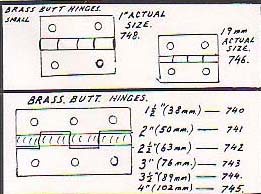 BRASS BUTT HINGES.
SMALL
1" ACTUAL
SIZE.
748.
19mm
ACTUAL
SIZE.
746.
BRASS. BUTT. HINGES.
1½" (38mm.) — 740
2" (50mm.) — 741
2½" (63mm) — 742
3" (76mm.) — 743
3½" (89mm) — 744.
4" (102mm) — 745.